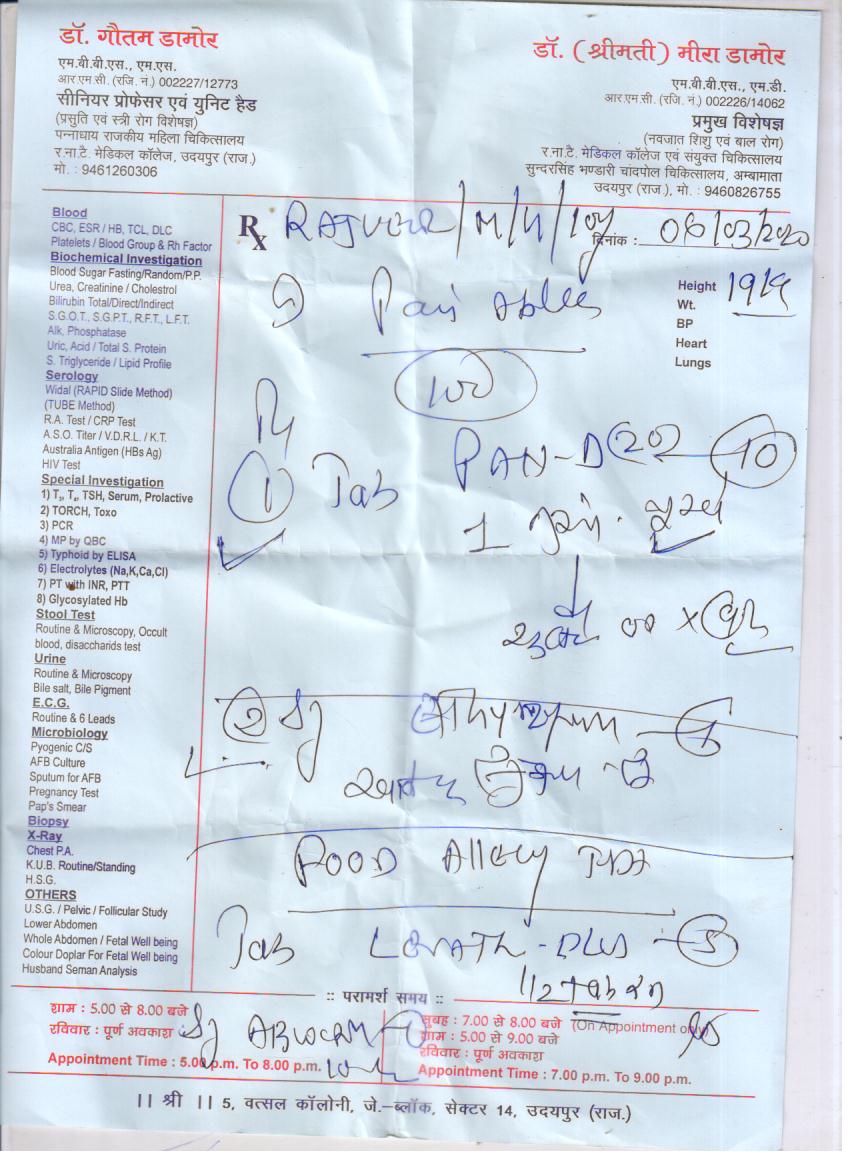 डॉ. गौतम डामोर
एम.बी.बी.एस., एम.एस.
आर.एम.सी. (रजि. नं.) 002227/12773
सीनियर प्रोफेसर एवं युनिट हैड
(प्रसुति एवं स्त्री रोग विशेषज्ञ)
पन्नाधाय राजकीय महिला चिकित्सालय
र.ना.टै. मेडिकल कॉलेज, उदयपुर (राज.)
मो. : 9461260306
डॉ. (श्रीमती) मीरा डामोर
एम.बी.बी.एस., एम.डी.
आर.एम.सी. (रजि. नं.) 002226/14062
प्रमुख विशेषज्ञ
(नवजात शिशु एवं बाल रोग)
र.ना.टै. मेडिकल कॉलेज एवं संयुक्त चिकित्सालय
सुन्दरसिंह भण्डारी चांदपोल चिकित्सालय, अम्बामाता
उदयपुर (राज.), मो. : 9460826755
Blood
CBC, ESR / HB, TCL, DLC
Platelets / Blood Group & Rh Factor
Biochemical Investigation
Blood Sugar Fasting/Random/P.P.
Urea, Creatinine / Cholestrol
Bilirubin Total/Direct/Indirect
S.G.O.T., S.G.P.T., R.F.T., L.F.T.
Alk, Phosphatase
Uric, Acid / Total S. Protein
S. Triglyceride / Lipid Profile
Serology
Widal (RAPID Slide Method)
(TUBE Method)
R.A. Test / CRP Test
A.S.O. Titer / V.D.R.L. / K.T.
Australia Antigen (HBs Ag)
HIV Test
Special Investigation
1) T₃, T₄, TSH, Serum, Prolactive
2) TORCH, Toxo
3) PCR
4) MP by QBC
5) Typhoid by ELISA
6) Electrolytes (Na,K,Ca,Cl)
7) PT with INR, PTT
8) Glycosylated Hb
Stool Test
Routine & Microscopy, Occult
blood, disaccharids test
Urine
Routine & Microscopy
Bile salt, Bile Pigment
E.C.G.
Routine & 6 Leads
Microbiology
Pyogenic C/S
AFB Culture
Sputum for AFB
Pregnancy Test
Pap's Smear
Biopsy
X-Ray
Chest P.A.
K.U.B. Routine/Standing
H.S.G.
OTHERS
U.S.G. / Pelvic / Follicular Study
Lower Abdomen
Whole Abdomen / Fetal Well being
Colour Doplar For Fetal Well being
Husband Seman Analysis
Rx
दिनांक : 06/03/2020
Height
Wt.
BP
Heart
Lungs
100
① Tab PAN-D 10
1
②
FOOD Allergy Test
Tab
:: परामर्श समय ::
शाम : 5.00 से 8.00 बजे
रविवार : पूर्ण अवकाश
Appointment Time : 5.00 p.m. To 8.00 p.m.
सुबह : 7.00 से 8.00 बजे (On Appointment only)
शाम : 5.00 से 9.00 बजे
रविवार : पूर्ण अवकाश
Appointment Time : 7.00 p.m. To 9.00 p.m.
|| श्री || 5, वत्सल कॉलोनी, जे.–ब्लॉक, सेक्टर 14, उदयपुर (राज.)